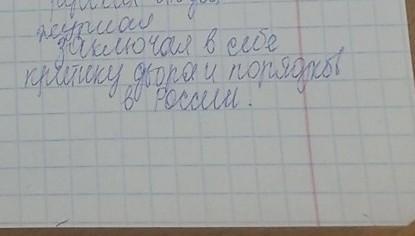 журнал
заключал в себе
критику двора и порядков
в России.